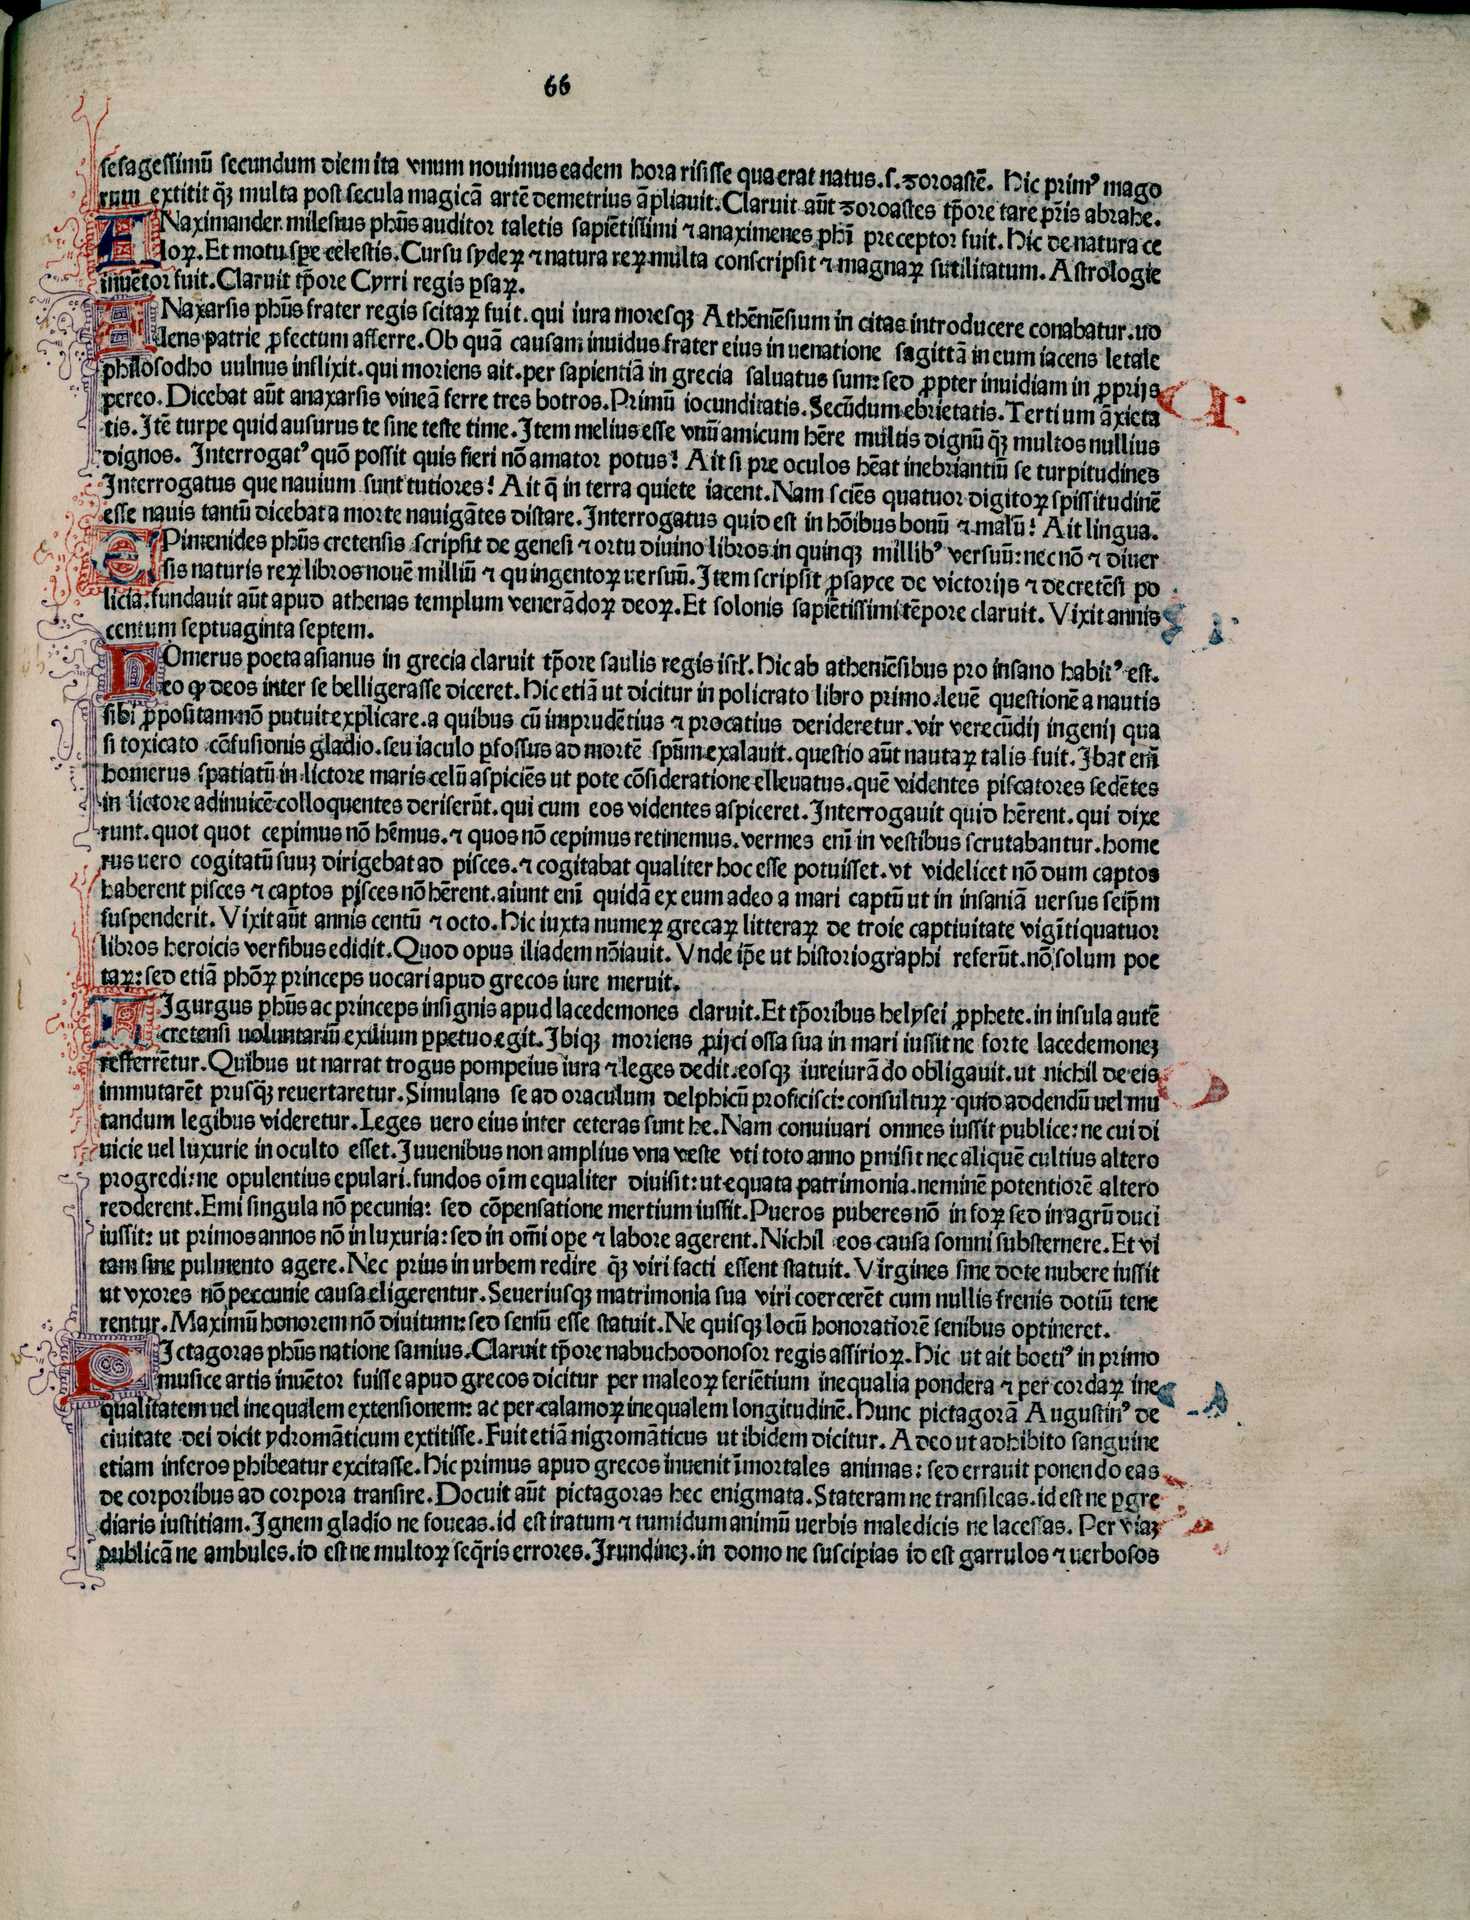 66
sesagessimū secundum diem ita vnum nouimus eadem hora risisse qua erat natus.s.zoroastē. Hic prim᾽ mago
rum extitit q̄ꝫ multa post secula magicā artē demetrius āpliauit. Claruit aūt zoroastes tp̄ore tare pr̄is abrahe.
ANaximander milesius phūs auditor taletis sapiētissimi ⁊ anaximenes phī preceptor fuit. Hic de natura ce
loꝝ. Et motu spe celestis. Cursu sydeꝝ ⁊ natura reꝝ multa conscripsit ⁊ magnaꝝ sutilitatum. Astrologie
inuētor fuit. Claruit tp̄ore Cyrri regis ꝑsaꝝ.
ANaxarsis phūs frater regis scitaꝝ fuit. qui iura moresqꝫ Athēniēsium in citas introducere conabatur. uo
lens patrie ꝓfectum afferre. Ob quā causam inuidus frater eius in uenatione sagittā in eum iacens letale
philosodho uulnus inflixit. qui moriens ait. per sapientiā in grecia saluatus sum: sed ꝓpter inuidiam in ꝓprijs
pereo. Dicebat aūt anaxarsis vineā ferre tres botros. Primū iocunditatis. Secūdum ebrietatis. Tertium āxieta
tis. Itē turpe quid ausurus te sine teste time. Item melius esse vnū amicum hēre multis dignū q̄ꝫ multos nullius
dignos. Interrogat᾽ quō possit quis fieri nō amator potus! Ait si pre oculos hēat inebriantiū se turpitudines
Interrogatus que nauium sunt tutiores! Ait q̄ in terra quiete iacent. Nam sciēs quatuor digitoꝝ spissitudinē
esse nauis tantū dicebat a morte nauigātes distare. Interrogatus quid est in hōibus bonū ⁊ malū! Ait lingua.
EPimenides phūs cretensis scripsit de genesi ⁊ ortu diuino libros in quinqꝫ millib᾽ versuū: nec nō ⁊ diuer
sis naturis reꝝ libros nouē milliū ⁊ quingentoꝝ uersuū. Item scripsit ꝓsayce de victorijs ⁊ decretēsi po
licia. fundauit aūt apud athenas templum venerādoꝝ deoꝝ. Et solonis sapiētissimi tēpore claruit. Vixit annis
centum septuaginta septem.
HOmerus poeta asianus in grecia claruit tp̄ore saulis regis isrl. Hic ab atheniēsibus pro insano habit᾽ est.
eo ꝙ deos inter se belligerasse diceret. Hic etiā ut dicitur in policrato libro primo. leuē questionē a nautis
sibi ꝓpositam nō putuit explicare. a quibus cū imprudētius ⁊ procatius derideretur. vir verecūdij ingenij qua
si toxicato cōfusionis gladio. seu iaculo ꝑfossus ad mortē spūm exalauit. questio aūt nautaꝝ talis fuit. Ibat enī
homerus spatiatū in lictore maris celū aspiciēs ut pote cōsideratione elleuatus. quē videntes piscatores sedētes
in lictore adinuicē colloquentes deriserūt. qui cum eos videntes aspiceret. Interrogauit quid hērent. qui dixe
runt. quot quot cepimus nō hēmus. ⁊ quos nō cepimus retinemus. vermes enī in vestibus scrutabantur. home
rus uero cogitatū suuꝫ dirigebat ad pisces. ⁊ cogitabat qualiter hoc esse potuisset. vt videlicet nō dum captos
haberent pisces ⁊ captos pisces nō hērent. aiunt enī quidā ex eum adeo a mari captū ut in insaniā uersus seip̄m
suspenderit. Vixit aūt annis centū ⁊ octo. Hic iuxta numeꝝ grecaꝝ litteraꝝ de troie captiuitate vigītiquatuor
libros heroicis versibus edidit. Quod opus iliadem nōiauit. Vnde ip̄e ut historiographi referūt. nō solum poe
taꝝ: sed etiā phōꝝ princeps uocari apud grecos iure meruit.
LIgurgus phūs ac princeps insignis apud lacedemones claruit. Et tp̄oribus helysei ꝓphete. in insula autē
cretensi uoluntariū exilium ꝑpetuo egit. Ibiqꝫ moriens ꝓijci ossa sua in mari iussit ne forte lacedemoneꝫ
refferrētur. Quibus ut narrat trogus pompeius iura ⁊ leges dedit. eosqꝫ iureiurādo obligauit. ut nichil de eis
immutarēt prusq̄ꝫ reuertaretur. Simulans se ad oraculum delphicū proficisci: consultuꝝ quid addendū uel mu
tandum legibus videretur. Leges uero eius inter ceteras sunt he. Nam conuiuari omnes iussit publice: ne cui di
uicie uel luxurie in oculto esset. Iuuenibus non amplius vna veste vti toto anno ꝑmisit nec aliquē cultius altero
progredi: ne opulentius epulari. fundos oīm equaliter diuisit: ut equata patrimonia. neminē potentiorē altero
redderent. Emi singula nō pecunia: sed cōpensatione mertium iussit. Pueros puberes nō in foꝝ sed in agrū duci
iussit: ut primos annos nō in luxuria: sed in om̄i oꝑe ⁊ labore agerent. Nichil eos causa somni substernere. Et vi
tam sine pulmento agere. Nec prius in urbem redire q̄ꝫ viri facti essent statuit. Virgines sine dote nubere iussit
ut vxores nō peccunie causa eligerentur. Seueriusqꝫ matrimonia sua viri coercerēt cum nullis frenis dotiū tene
rentur. Maximū honorem nō diuitum: sed seniū esse statuit. Ne quisqꝫ locū honoratiorē senibus optineret.
PIctagoras phūs natione samius. Claruit tp̄ore nabuchodonosor regis assirioꝝ. Hic ut ait boeti᾽ in primo
musice artis inuētor fuisse apud grecos dicitur per maleoꝝ feriētium inequalia pondera ⁊ per cordaꝝ ine
qualitatem uel inequalem extensionem: ac per calamoꝝ inequalem longitudinē. Hunc pictagorā Augustin᾽ de
ciuitate dei dicit ydromāticum extitisse. Fuit etiā nigromāticus ut ibidem dicitur. Adeo ut adhibito sanguine
etiam inferos ꝑhibeatur excitasse. Hic primus apud grecos inuenit īmortales animas: sed errauit ponendo eas
de corporibus ad corpora transire. Docuit aūt pictagoras hec enigmata. Stateram ne transileas. id est ne ꝑgre
diaris iustitiam. Ignem gladio ne foueas. id est iratum ⁊ tumidum animū uerbis maledicis ne lacessas. Per viaꝫ
publicā ne ambules. id est ne multoꝝ seq̄ris errores. Irundineꝫ. in domo ne suscipias id est garrulos ⁊ uerbosos